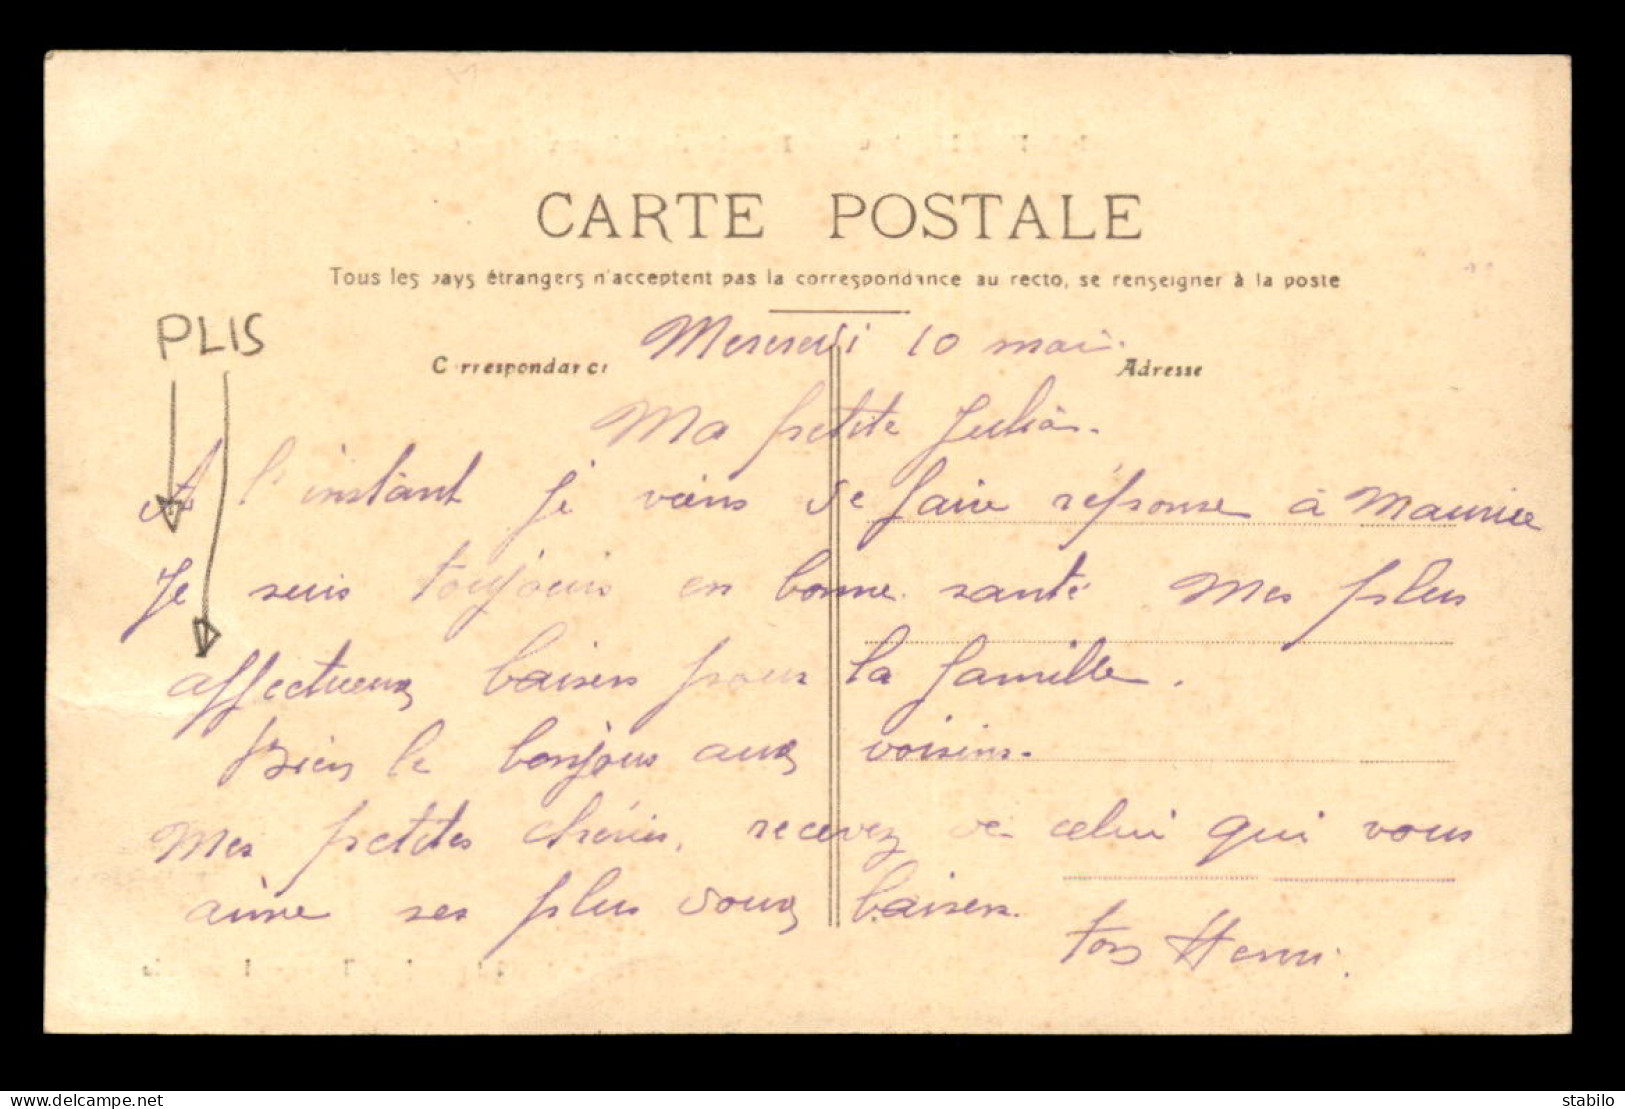 CARTE POSTALE
Tous les pays étrangers n'acceptent pas la correspondance au recto, se renseigner à la poste
PLIS
Mercredi 10 mai.
Correspondance
Adresse
Ma petite
A l'instant je viens de faire réponse à Maurice
Je suis toujours en bonne santé Mes plus
affectueux baisers pour la famille.
Bien le bonjour aux voisins.
Mes petites chéries, recevez de celui qui vous
aime ses plus doux baisers.
ton Henri.
delcampe.net
stabilo